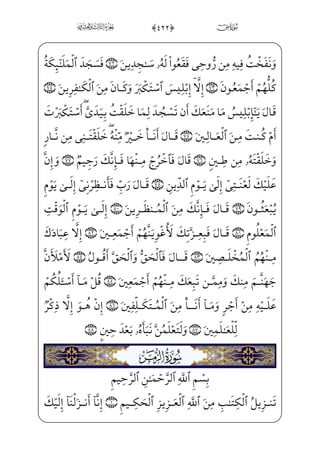 وَنَفَخْتُ فِيهِ مِن رُّوحِى فَقَعُوا۟ لَهُۥ سَـٰجِدِينَ ۝ فَسَجَدَ ٱلْمَلَـٰٓئِكَةُ
كُلُّهُمْ أَجْمَعُونَ ۝ إِلَّآ إِبْلِيسَ ٱسْتَكْبَرَ وَكَانَ مِنَ ٱلْكَـٰفِرِينَ ۝
قَالَ يَـٰٓإِبْلِيسُ مَا مَنَعَكَ أَن تَسْجُدَ لِمَا خَلَقْتُ بِيَدَىَّ ۖ أَسْتَكْبَرْتَ
أَمْ كُنتَ مِنَ ٱلْعَالِينَ ۝ قَالَ أَنَا۠ خَيْرٌ مِّنْهُ ۖ خَلَقْتَنِى مِن نَّارٍ
وَخَلَقْتَهُۥ مِن طِينٍ ۝ قَالَ فَٱخْرُجْ مِنْهَا فَإِنَّكَ رَجِيمٌ ۝ وَإِنَّ
عَلَيْكَ لَعْنَتِىٓ إِلَىٰ يَوْمِ ٱلدِّينِ ۝ قَالَ رَبِّ فَأَنظِرْنِىٓ إِلَىٰ يَوْمِ
يُبْعَثُونَ ۝ قَالَ فَإِنَّكَ مِنَ ٱلْمُنظَرِينَ ۝ إِلَىٰ يَوْمِ ٱلْوَقْتِ
ٱلْمَعْلُومِ ۝ قَالَ فَبِعِزَّتِكَ لَأُغْوِيَنَّهُمْ أَجْمَعِينَ ۝ إِلَّا عِبَادَكَ
مِنْهُمُ ٱلْمُخْلَصِينَ ۝ قَالَ فَٱلْحَقُّ وَٱلْحَقَّ أَقُولُ ۝ لَأَمْلَأَنَّ
جَهَنَّمَ مِنكَ وَمِمَّن تَبِعَكَ مِنْهُمْ أَجْمَعِينَ ۝ قُلْ مَآ أَسْـَٔلُكُمْ
عَلَيْهِ مِنْ أَجْرٍ وَمَآ أَنَا۠ مِنَ ٱلْمُتَكَلِّفِينَ ۝ إِنْ هُوَ إِلَّا ذِكْرٌ
لِّلْعَـٰلَمِينَ ۝ وَلَتَعْلَمُنَّ نَبَأَهُۥ بَعْدَ حِينٍۭ ۝
سُورَةُ الزُّمَرِ
بِسْمِ ٱللَّهِ ٱلرَّحْمَـٰنِ ٱلرَّحِيمِ
تَنزِيلُ ٱلْكِتَـٰبِ مِنَ ٱللَّهِ ٱلْعَزِيزِ ٱلْحَكِيمِ ۝ إِنَّآ أَنزَلْنَآ إِلَيْكَ